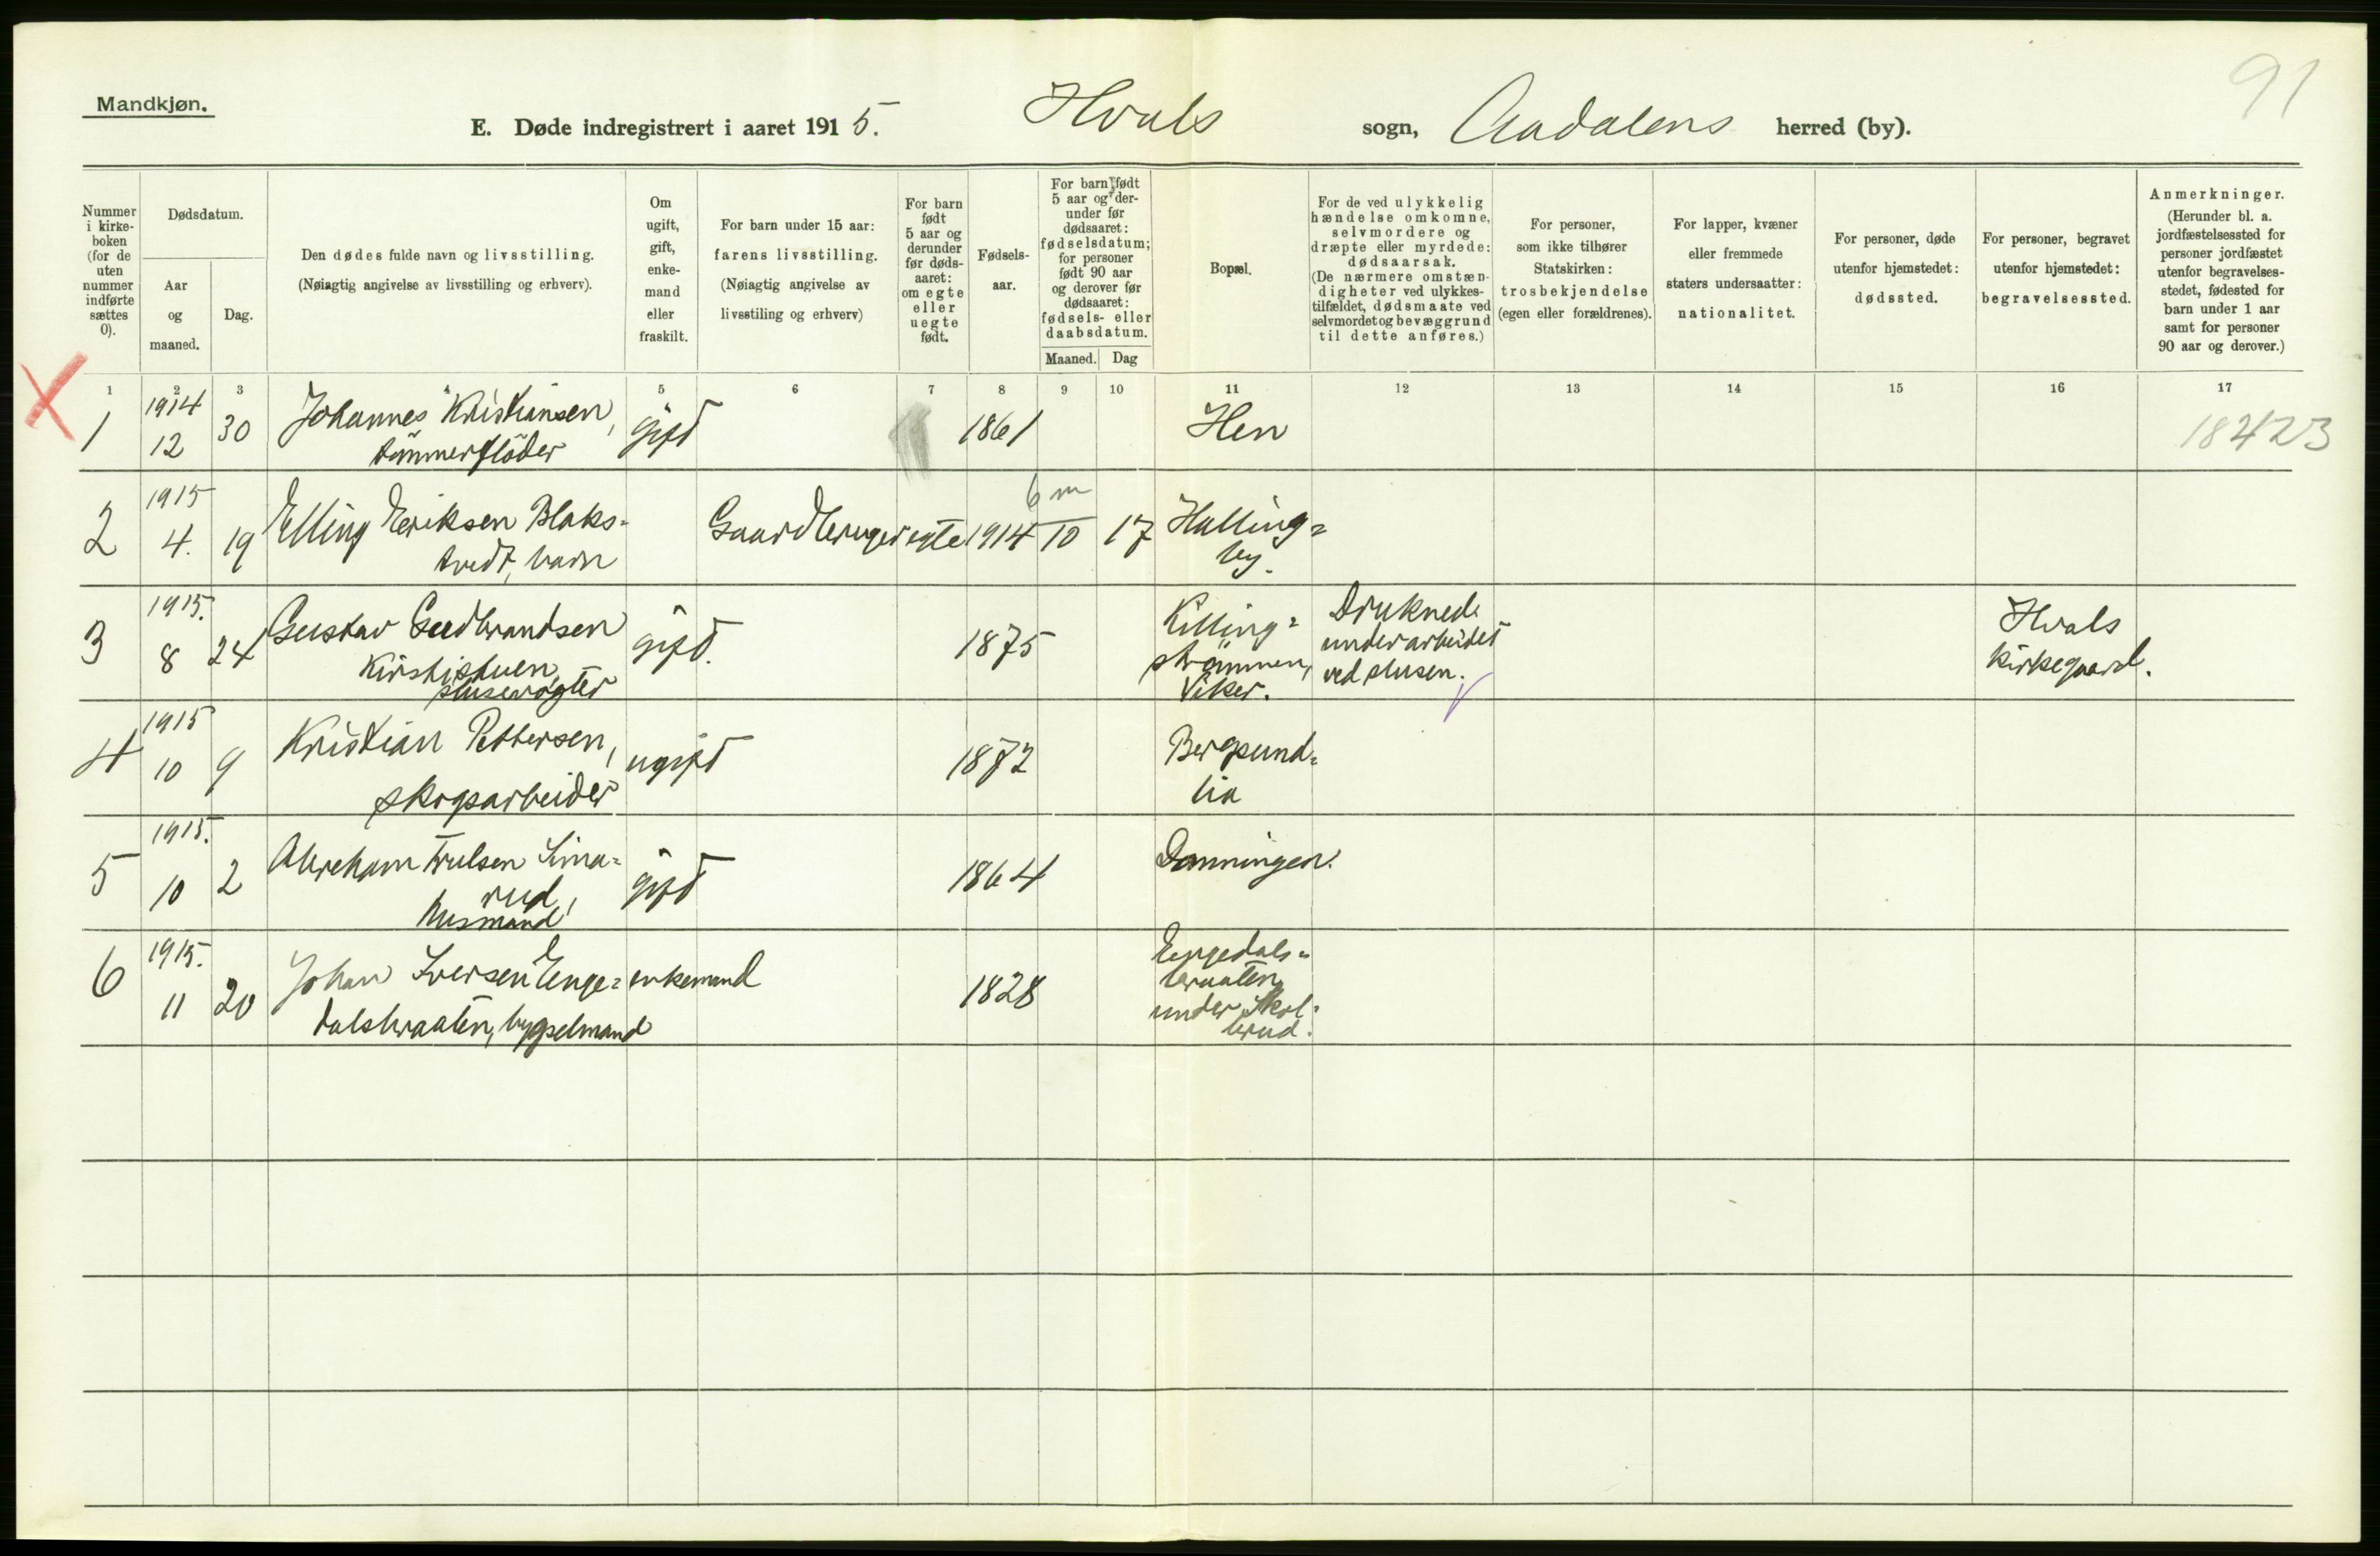 91
Mandkjøn.
E. Døde indregistrert i aaret 1915. Hvals sogn, Aadalens herred (by).
Nummer
i kirke-
boken
(for de
uten
nummer
indførte
sættes
0).
Dødsdatum.
Aar
og
maaned.
Dag.
Den dødes fulde navn og livsstilling.
(Nøiagtig angivelse av livsstilling og erhverv).
Om
ugift,
gift,
enke-
mand
eller
fraskilt.
For barn under 15 aar:
farens livsstilling.
(Nøiagtig angivelse av
livsstiling og erhverv)
For barn
født
5 aar og
derunder
før døds-
aaret:
om egte
eller
uegte
født.
Fødsels-
aar.
For barn født
5 aar og der-
under før
dødsaaret:
fødselsdatum;
for personer
født 90 aar
og derover før
dødsaaret:
fødsels- eller
daabsdatum.
Maaned. Dag
Bopæl.
For de ved ulykkelig
hændelse omkomne,
selvmordere og
dræpte eller myrdede:
dødsaarsak.
(De nærmere omstæn-
digheter ved ulykkes-
tilfældet, dødsmaate ved
selvmordet og bevæggrund
til dette anføres.)
For personer,
som ikke tilhører
Statskirken:
trosbekjendelse
(egen eller forældrenes).
For lapper, kvæner
eller fremmede
staters undersaatter:
nationalitet.
For personer, døde
utenfor hjemstedet:
dødssted.
For personer, begravet
utenfor hjemstedet:
begravelsessted.
Anmerkninger.
(Herunder bl. a.
jordfæstelsessted for
personer jordfæstet
utenfor begravelses-
stedet, fødested for
barn under 1 aar
samt for personer
90 aar og derover.)
1 2 3 4 5 6 7 8 9 10 11 12 13 14 15 16 17
1 1914 12 30 Johannes Kristiansen, gift 1861 Hen 18423
tömmerflöder
2 1915 4. 19 Elling Eriksen Blaks= Gaardbruger egte 1914 10 17 Halling=
6 m
tvedt, barn by.
3 1915. 8 24 Gustav Gudbrandsen gift. 1875 Killing= Druknede Hvals
Kirstistuen, strömmen, under arbeidet kirkegaard.
slusevogter Viker. ved slusen.
4 1915 10 9 Kristian Pettersen, ugift 1872 Bergsund=
skogsarbeider lia
5 1915. 10 2 Abreham Trulsen Lima= gift 1864
rud,
husmand
6 1915. 11 20 Johan Iversen Enge= enkemand 1828 Engedals=
dalsbraaten, bygselmand braaten
under Skol=
brud.